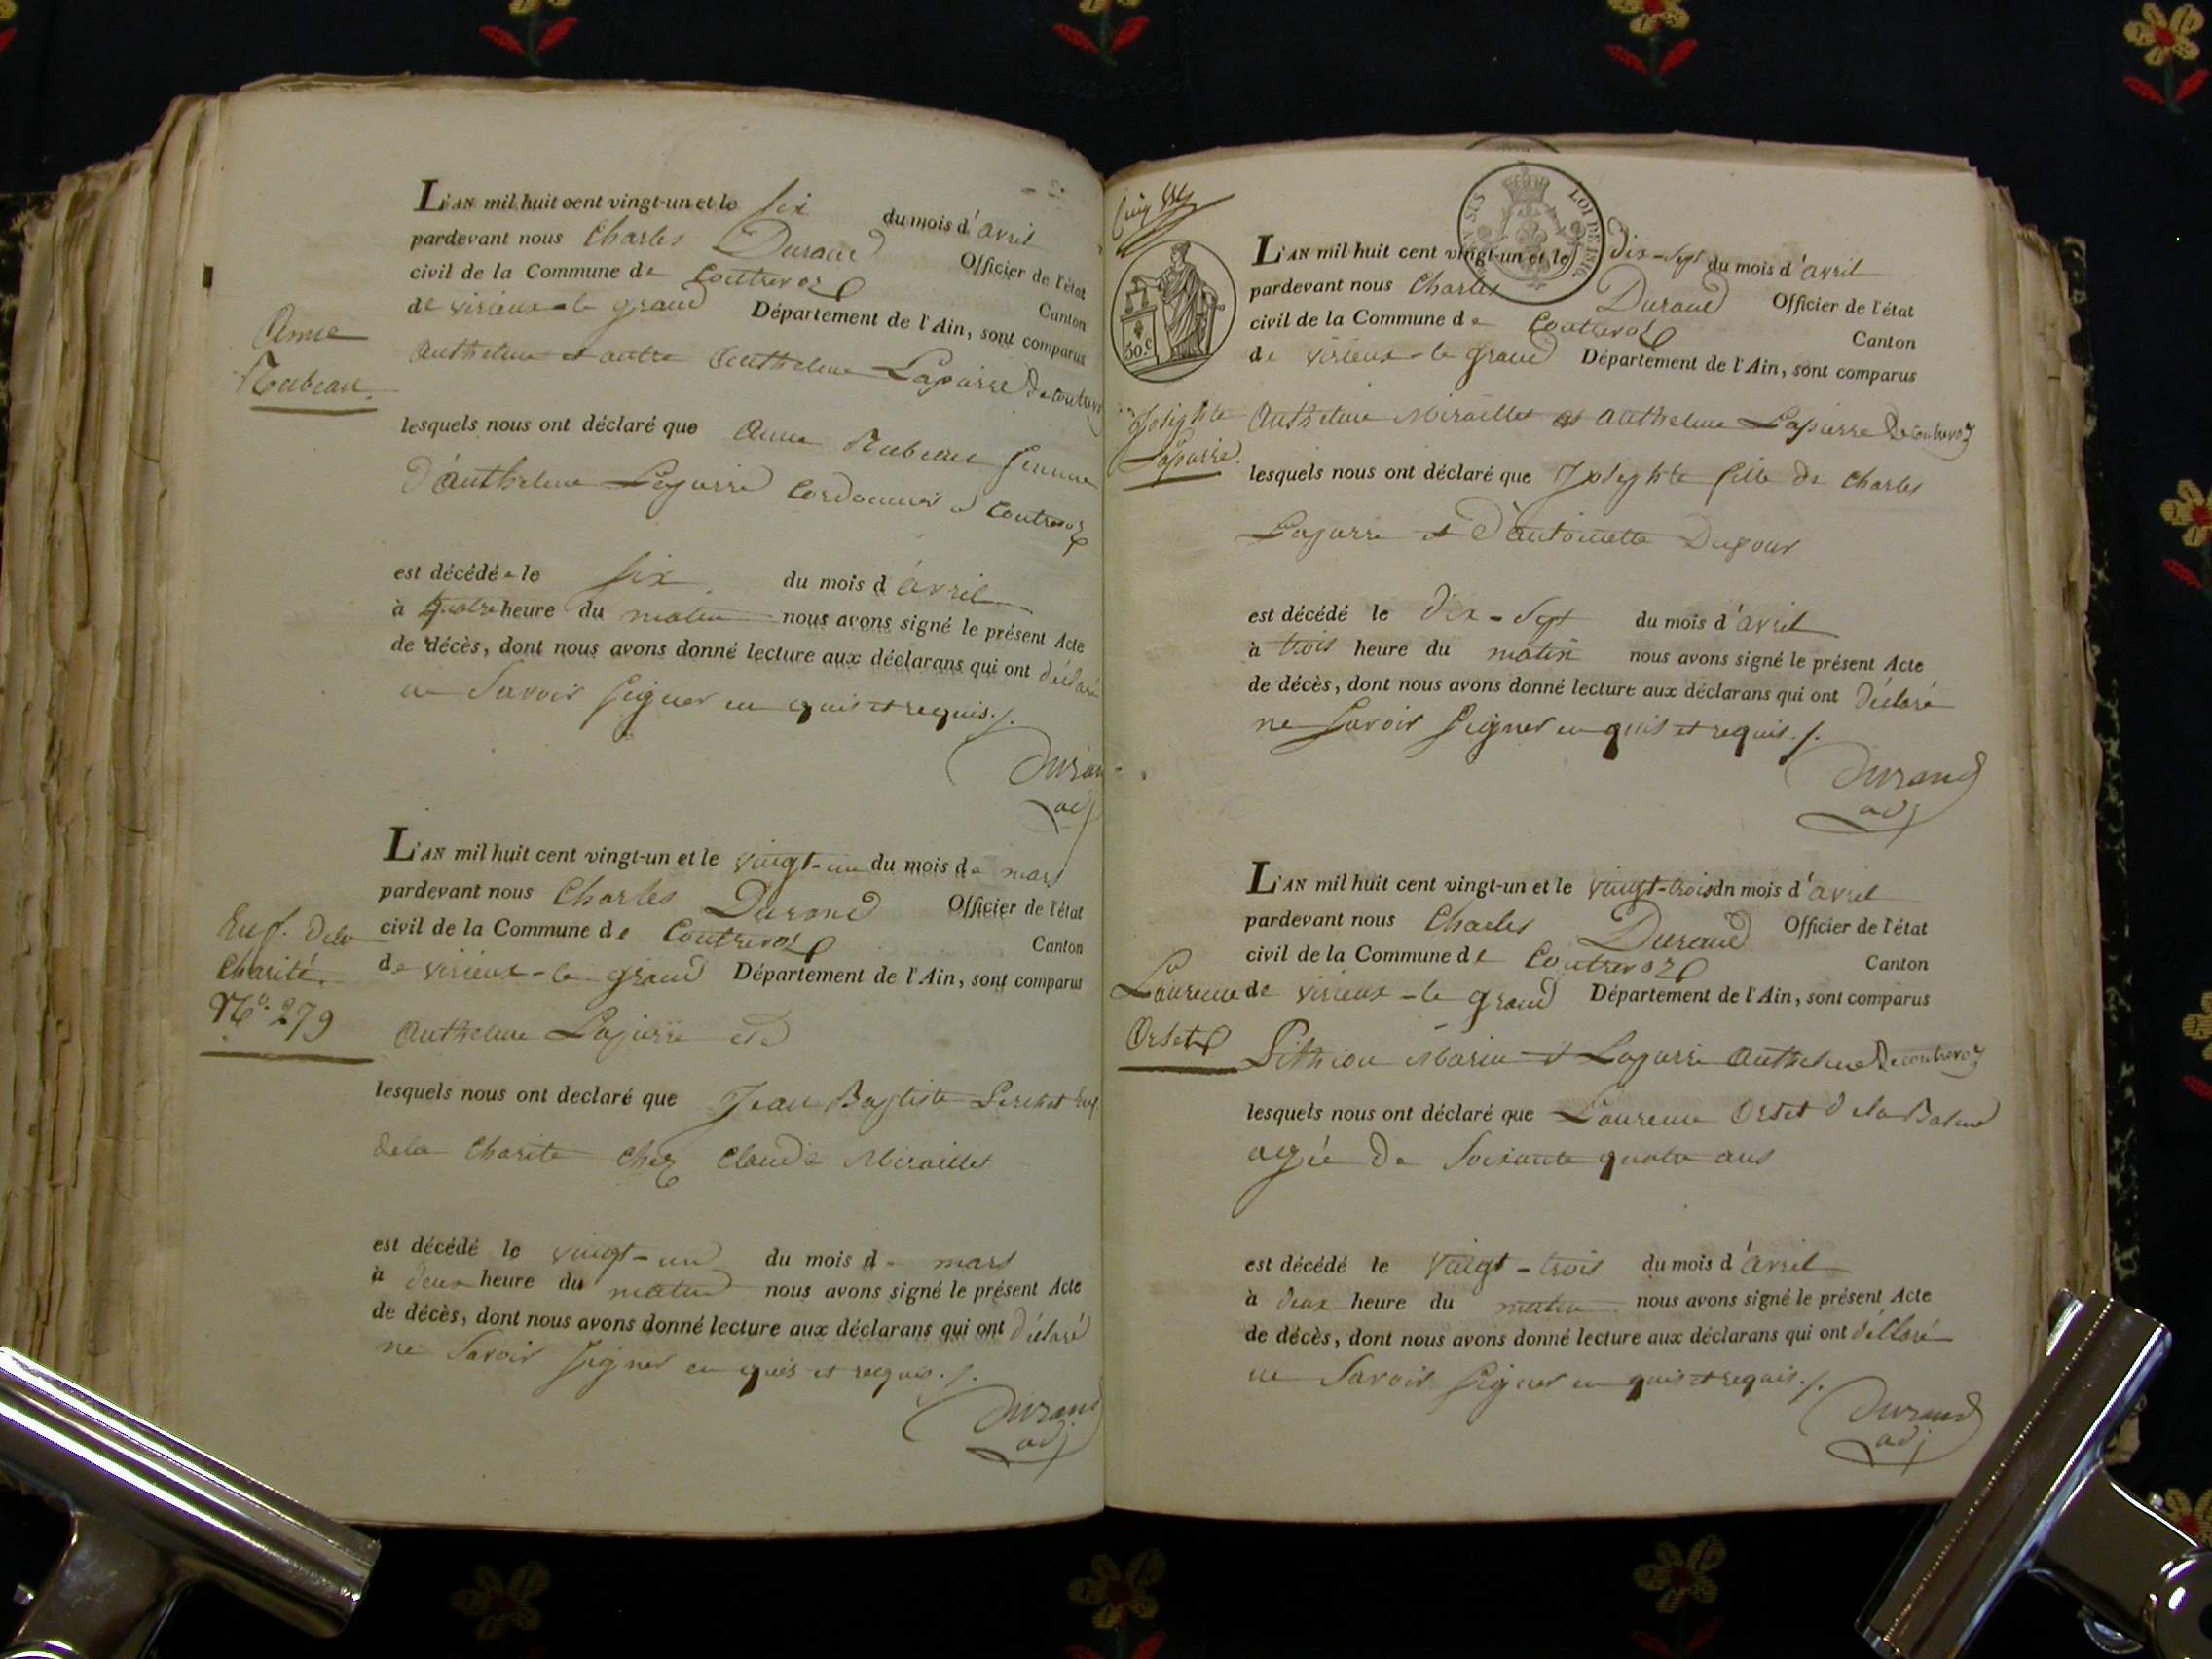 L'AN mil huit cent vingt-un et le six du mois d'avril
pardevant nous Charles Durand Officier de l'état
civil de la Commune de Contrevoz Canton
de virieux-le grand Département de l'Ain, sont comparus
Anthelme et autre Anthelme Lapierre de contrevoz
Anne
Rubeau
lesquels nous ont déclaré que Anne Rubeau femme
d'Anthelme Lapierre Cordonnier a Contrevoz
est décédée le six du mois d'avril
à quatre heure du matin nous avons signé le présent Acte
de décès, dont nous avons donné lecture aux déclarans qui ont déclaré
ne Savoir signer en quis et requis ./.
Durand
adj
L'AN mil huit cent vingt-un et le vingt-un du mois de mars
pardevant nous Charles Durand Officier de l'état
civil de la Commune de Contrevoz Canton
de virieux-le grand Département de l'Ain, sont comparus
Enf. de la
Charité
No. 279
Anthelme Lapierre et
lesquels nous ont declaré que Jean Baptiste Enf.
de la Charité Chez Claude Miraillet
est décédé le vingt-un du mois de mars
à deux heure du matin nous avons signé le présent Acte
de décès, dont nous avons donné lecture aux déclarans qui ont déclaré
ne Savoir signer en quis et requis ./.
Durand
adj
LOI DE 1816
50.c
L'AN mil huit cent vingt-un et le dix-sept du mois d'avril
pardevant nous Charles Durand Officier de l'état
civil de la Commune de Contrevoz Canton
de virieux-le grand Département de l'Ain, sont comparus
Josephte
Lapierre.
Anthelme Miraillet et Anthelme Lapierre de contrevoz
lesquels nous ont déclaré que Josephte fille de Charles
Lapierre et d'antoinette Dufour
est décédé le dix-sept du mois d'avril
à trois heure du matin nous avons signé le présent Acte
de décès, dont nous avons donné lecture aux déclarans qui ont déclaré
ne Savoir signer en quis et requis ./.
Durand
adj
L'AN mil huit cent vingt-un et le vingt-trois dn mois d'avril
pardevant nous Charles Durand Officier de l'état
civil de la Commune de Contrevoz Canton
de virieux-le grand Département de l'Ain, sont comparus
Laurence
Orset
Pithiou Marin et Lapierre Anthelme de contrevoz
lesquels nous ont déclaré que Laurence Orset de la Balme
agée de soixante quatre ans
est décédé le vingt-trois du mois d'avril
à deux heure du matin nous avons signé le présent Acte
de décès, dont nous avons donné lecture aux déclarans qui ont déclaré
ne Savoir signer en quis et requis ./.
Durand
adj